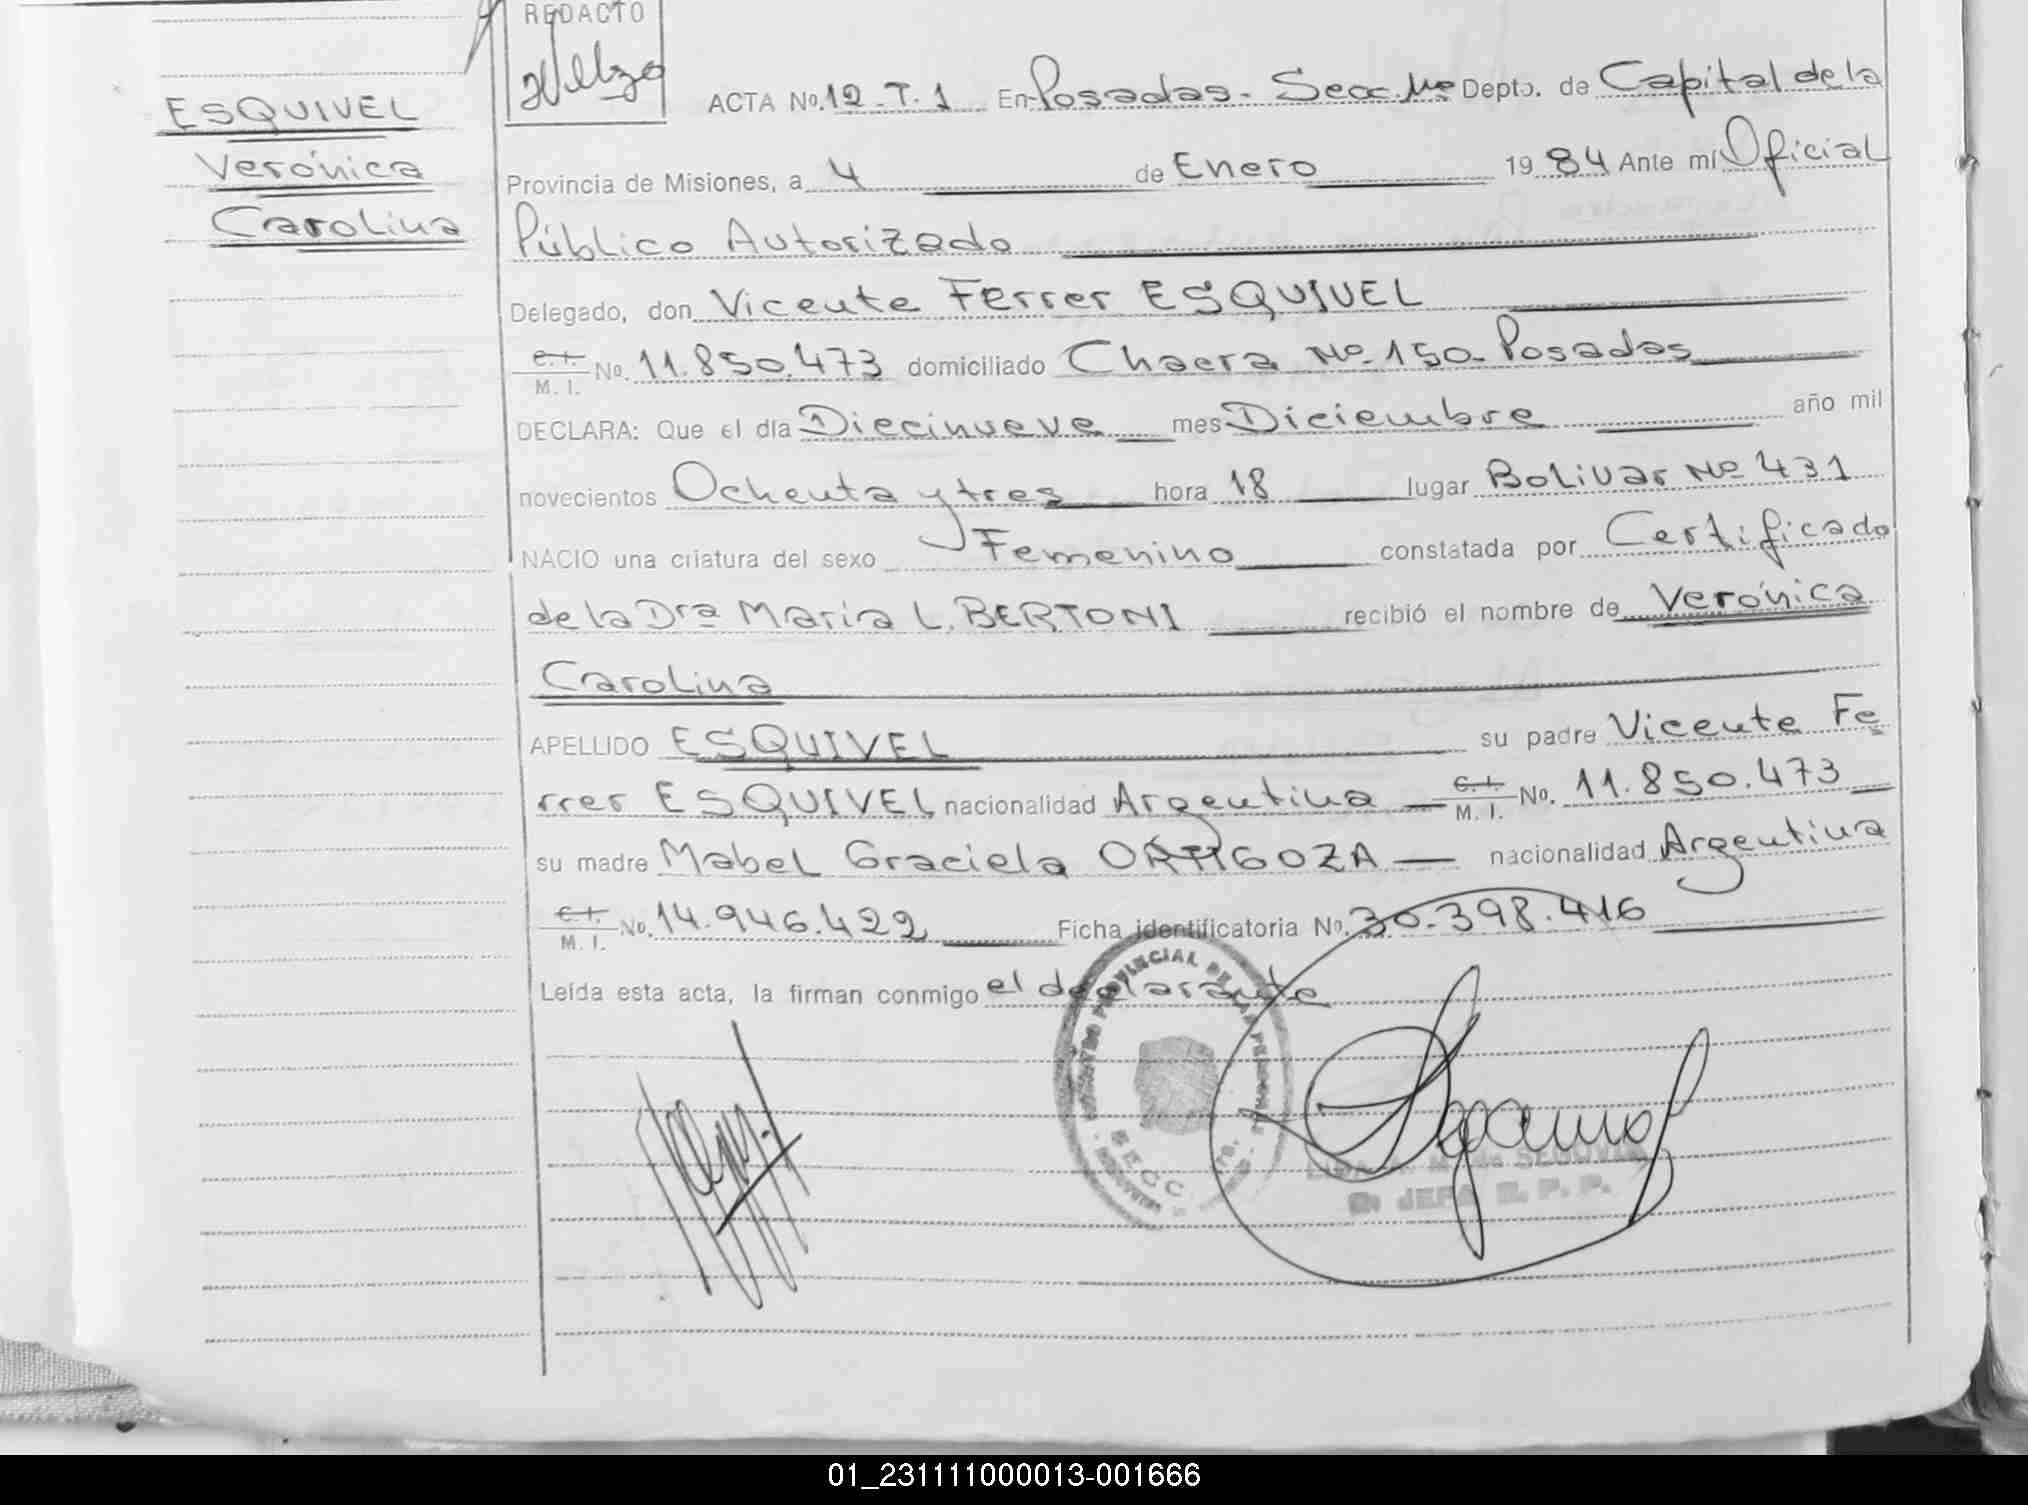 REDACTO
ESQUIVEL
Verónica
Carolina
ACTA No. 12 - T. 1 En Posadas - Secc. Depto. de Capital de la
Provincia de Misiones, a 4 de Enero 1984 Ante mí Oficial
Público Autorizado
Delegado, don Vicente Ferrer ESQUIVEL
C. I. M. I. No. 11.850.473 domiciliado Chacra No. 150 - Posadas
DECLARA: Que el día Diecinueve mes Diciembre año mil
novecientos Ochenta y tres hora 18 lugar Bolivar No 431
NACIO una criatura del sexo Femenino constatada por Certificado
de la Dra Maria L. BERTONI recibió el nombre de Verónica
Carolina
APELLIDO ESQUIVEL su padre Vicente Fe
rrer ESQUIVEL nacionalidad Argentina C. I. M. I. No. 11.850.473
su madre Mabel Graciela ORTIGOZA nacionalidad Argentina
C. I. M. I. No. 14.946.422 Ficha identificatoria No. 30.398.416
Leída esta acta, la firman conmigo el declarante
PROVINCIAL DE LAS PERSONAS
SECC.
SEGOVIA
JEFA R. P. P.
01_231111000013-001666